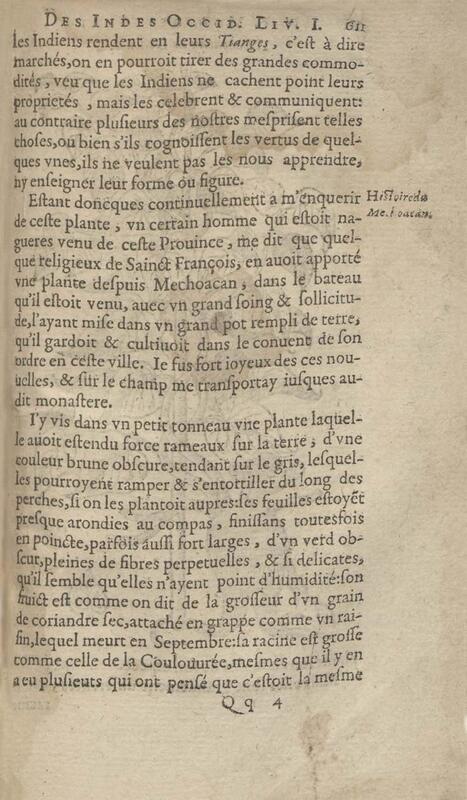 DES INDES OCCID. LIV. I. 611
les Indiens rendent en leurs Tianges, c'eſt à dire
marchés,on en pourroit tirer des grandes commo-
dités, veu que les Indiens ne cachent point leurs
proprietés , mais les celebrent & communiquent:
au contraire pluſieurs des noſtres meſpriſent telles
choſes,ou bien s'ils cognoiſſent les vertus de quel-
ques vnes,ils ne veulent pas les nous apprendre,
ny enſeigner leur forme ou figure.
Eſtant doncques continuellement a m'enquerir
Hiſtoire du
Mechoacan.
de ceſte plante , vn certain homme qui eſtoit na-
gueres venu de ceſte Prouince , me dit que quel-
que religieux de Sainct François, en auoit apporté
vne plante deſpuis Mechoacan , dans le bateau
qu'il eſtoit venu, auec vn grand ſoing & ſollicitu-
de,l'ayant miſe dans vn grand pot rempli de terre,
qu'il gardoit & cultiuoit dans le conuent de ſon
ordre en ceſte ville. Ie fus fort ioyeux des ces nou-
uelles, & ſur le champ me tranſportay iuſques au-
dit monaſtere.
I'y vis dans vn petit tonneau vne plante laquel-
le auoit eſtendu force rameaux ſur la terre , d'vne
couleur brune obſcure,tendant ſur le gris, leſquel-
les pourroyent ramper & s'entortiller du long des
perches,ſi on les plantoit aupres:ſes feuilles eſtoyẽt
preſque arondies au compas , finiſſans toutesfois
en poincte,parfois auſſi fort larges , d'vn verd ob-
ſcur,pleines de fibres perpetuelles , & ſi delicates,
qu'il ſemble qu'elles n'ayent point d'humidité:ſon
fruict eſt comme on dit de la groſſeur d'vn grain
de coriandre ſec,attaché en grappe comme vn rai-
ſin,lequel meurt en Septembre:ſa racine eſt groſſe
comme celle de la Coulouurée,meſmes que il y en
a eu pluſieurs qui ont penſé que c'eſtoit la meſme
Qq 4